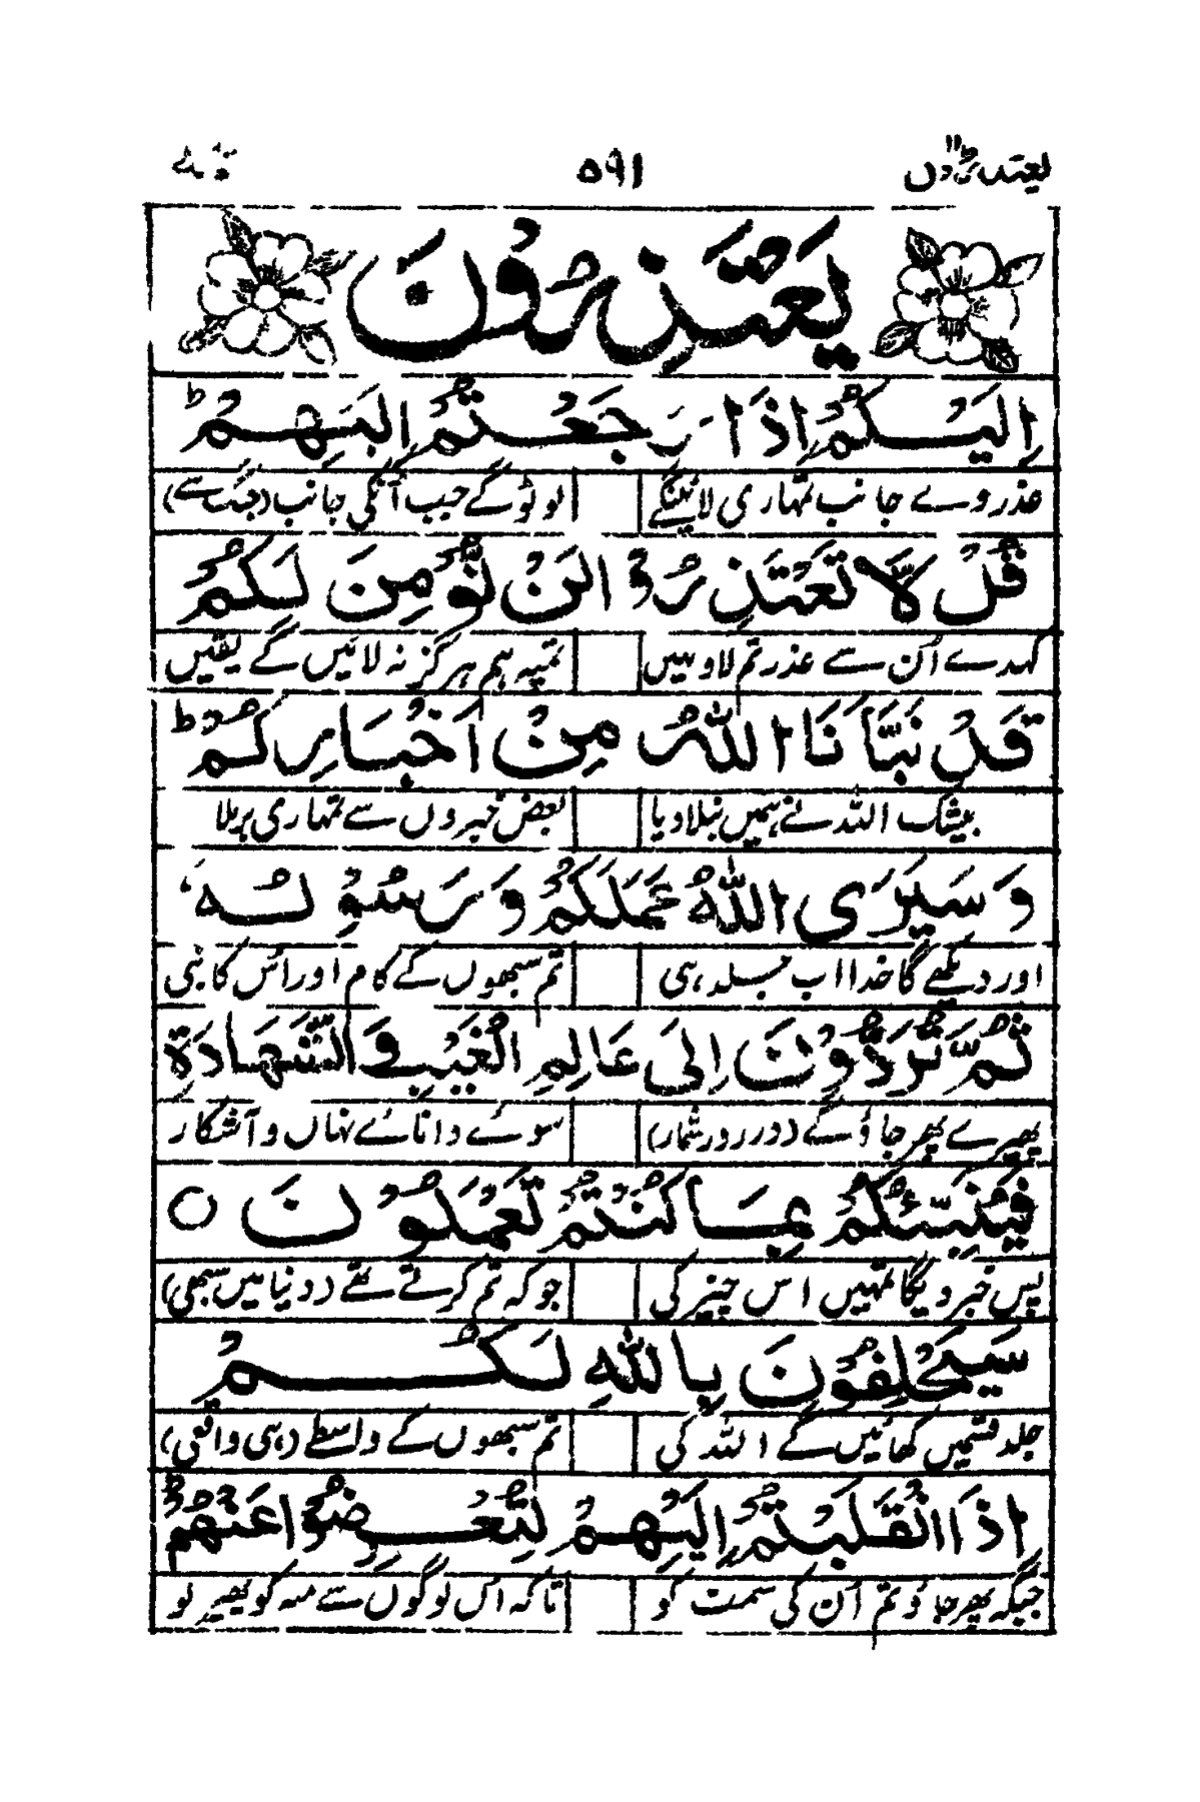 یعتذرون ۱۱ ۵۹۱ توبہ ۹
يَعْتَذِرُوْنَ
اِلَيْكُمْ اِذَا رَجَعْتُمْ اِلَيْهِمْ ط
عذر وے جانب تمہاری لائینگے لوٹو گے جب آنکی جانب (جنگ سے)
قُلْ لَّا تَعْتَذِرُوْا لَنْ نُّؤْمِنَ لَكُمْ
کہدے اُن سے عذر تم لاو نہیں تمپہ ہم ہرگز نہ لائیں گے یقیں
قَدْ نَبَّاَنَا اللّٰهُ مِنْ اَخْبَارِكُمْ ط
بیشک اللہ نے ہمیں بتلا دیا بعض خبروں سے تمہاری برملا
وَسَيَرَى اللّٰهُ عَمَلَكُمْ وَرَسُوْلُهٗ
اور دیکھے گا خدا اب جلد ہی تم سبھوں کے کام اور اُس کا نبی
ثُمَّ تُرَدُّوْنَ اِلٰى عَالِمِ الْغَيْبِ وَالشَّهَادَةِ
پھیرے پھر جاؤ گے (در روز شمار) سوئے دانائے نہاں و آشکار
فَيُنَبِّئُكُمْ بِمَا كُنْتُمْ تَعْمَلُوْنَ ○
پس خبر دیگا تمہیں اس چیز کی جو کہ تم کرتے تھے (دنیا میں سبھی)
سَيَحْلِفُوْنَ بِاللّٰهِ لَكُمْ
جلد قسمیں کھائیں گے اللہ کی تم سبھوں کے واسطے (ہی واقعی)
اِذَا انْقَلَبْتُمْ اِلَيْهِمْ لِتُعْرِضُوْا عَنْهُمْ
جبکہ پھر جاؤ تم اُن کی سمت کو تاکہ اُس لوگوں سے منہ کو پھیر لو